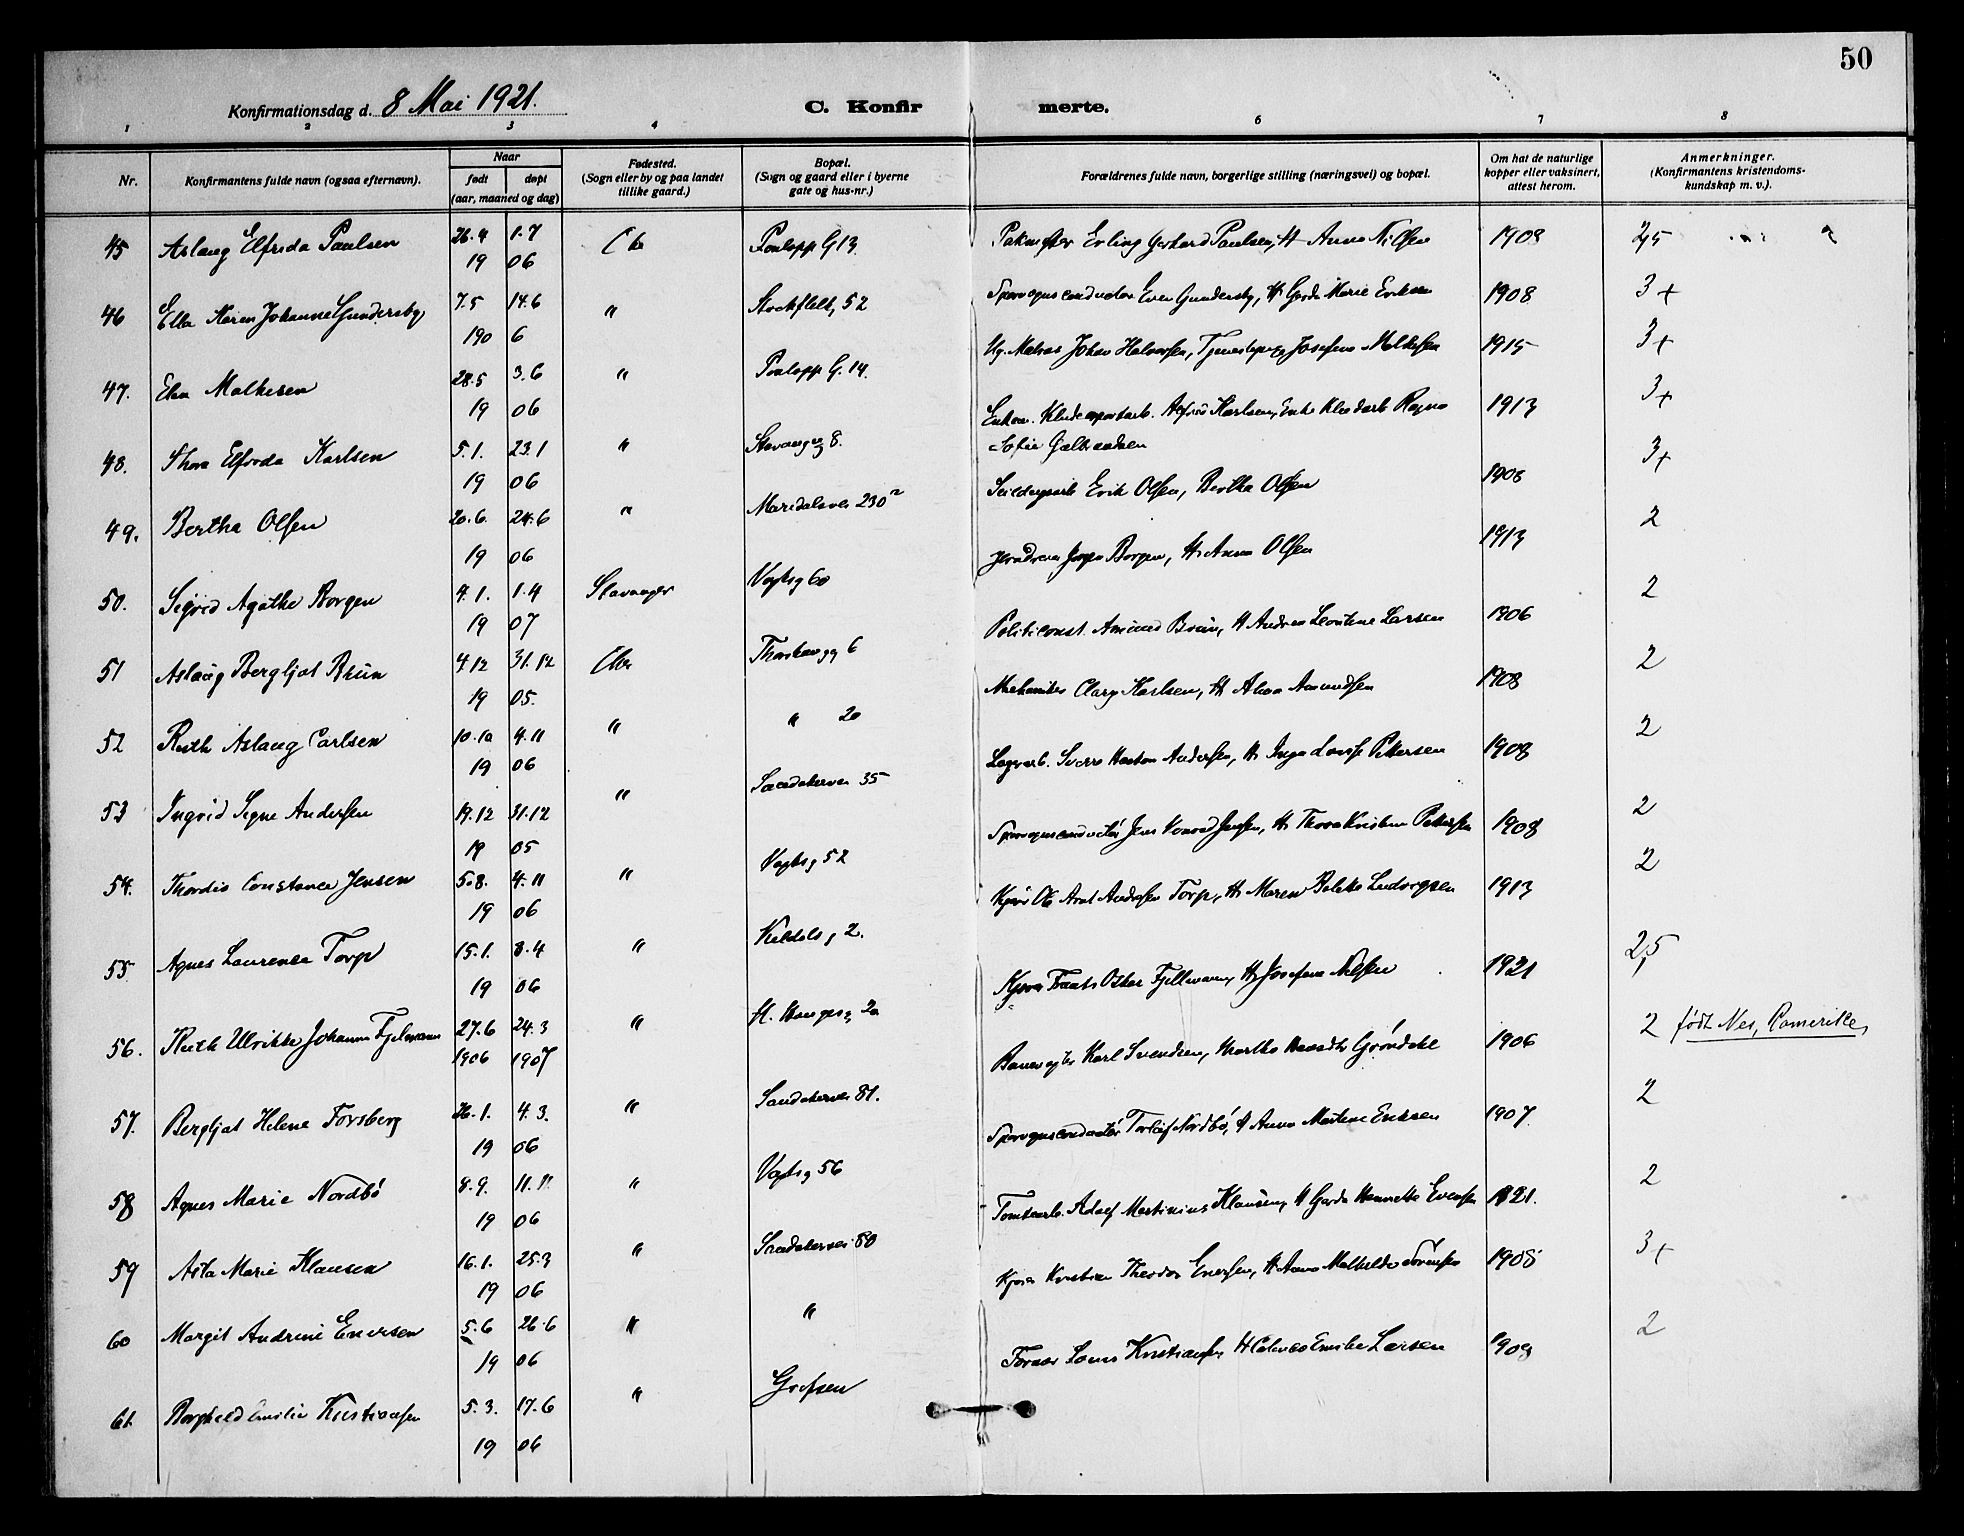 50
Konfirmationsdag d. 8 Mai 1921.
C. Konfir merte.
1 2 3 4 6 7 8
Nr.
Konfirmantens fulde navn (ogsaa efternavn).
Naar
født døpt
(aar, maaned og dag)
Fødested.
(Sogn eller by og paa landet
tillike gaard.)
Bopæl.
(Sogn og gaard eller i byerne
gate og hus-nr.)
Forældrenes fulde navn, borgerlige stilling (næringsvei) og bopæl.
Om hat de naturlige
kopper eller vaksinert,
attest herom.
Anmerkninger.
(Konfirmantens kristendoms-
kundskap m. v.).
45 Aslaug Elfrida Paulsen 26.4 1.7 G 13 Erling Gerhard Paulsen, H Anna Nilsen 1908 2,5
19 06
46 Ella Karen Johanne Gundersby 7.5 14.6 " 52 Sporvognsconductør Even Gundersby, H Gerda Marie Eriksen 1908 3+
190 6
47. Malkesen 28.5 3.6 " G. 14. Johan Halvorsen, Josefine 1915 3+
19 06
48. Thora Elfrida Karlsen 5.1. 23.1 " Stavangerg 8. Alfred Karlsen, Ragna 1913 3+
19 06 Sofie
49. Bertha Olsen 20.6. 24.6 " Maridalsvei 230 Erik Olsen, Bertha Olsen 1908 3+
19 06
50. Sigrid Agathe Borgen 4.1. 1.4 Stavanger Vogtsg 60 Borgen, H. Anna Olsen 1913 2
19 07
51 Aslaug Bergljot Brun 4.12 31.12 Chra Thorshaugg 6 Politiconst. Amund Brun, H Andrea Leontine Larsen 1906 2
19 05.
52 Ruth Aslaug Carlsen 10.10 4.11 " " 20 Mekaniker Karlsen, H. Alma Amundsen 1908 2
19 06
53 Ingrid Signe Andersen 19.12 31.12 " Sandakervei 35 Sverre Andersen, H. Inga Lovise Pettersen 1908 2
19 05
54. Thordis Constance Jensen 5.8. 4.11 " Vogtsg 52 Sporvognsconductør Jens Konrad Jensen, H. Thora Kristine Pettersen 1908 2
19 06
55 Agnes Laurence Torp 15.1. 8.4 " 2. Andersen Torp, H. Maren Ludvigsen 1913 2
19 06
56. Ruth Ulrikke Johanne Fjelmann 27.6 24.3 " H. Haugesg 20 Oskar Fjellmann, H. Josefine Nilsen 1921 2,5
1906 1907
57. Bergljot Helene Forsberg 26.1. 4.3. " Sandakervei 81. Banevogter Karl Svendsen, Grøndahl 1906 2 født Nes, Romerike
19 06
58 Agnes Marie Nordbö 8.9. 11.11 " Vogtsg 56 Sporvognsconductør Torleif Nordbö, H Anna Martine Eriksen 1907. 2
19 06
59 Asta Marie Klausen 16.1. 25.3 " Sandakervei 80 Tomtearb. Adolf Martinius Klausen, H Gerda Hennette Evensen 1921. 2
19 06
60 Margit Andrine Enersen 5.6 26.6 " " Kjører Kristian Theodor Enersen, H Anna Mathilde 1908 3+
19 06
61. Borghild Emilie Kristiansen 5.3. 17.6 " Grefsen Kristiansen, H Emilie Larsen 1908 2
19 06